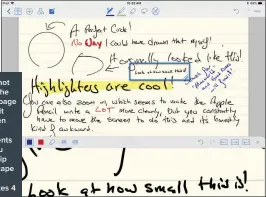 A Perfect Circle!
No Way I could have drawn that myself!
Normally looks like this!
Look at how small this is!
Highlighters are cool!
You can also zoom in, which seems to make the Apple
Pencil write a LOT more clearly, but you constantly
have to move the screen to do this and its honestly
kind of awkward.
not
the
page
it
en
ents
u
ip
ape
es 4
Look at how small this is!